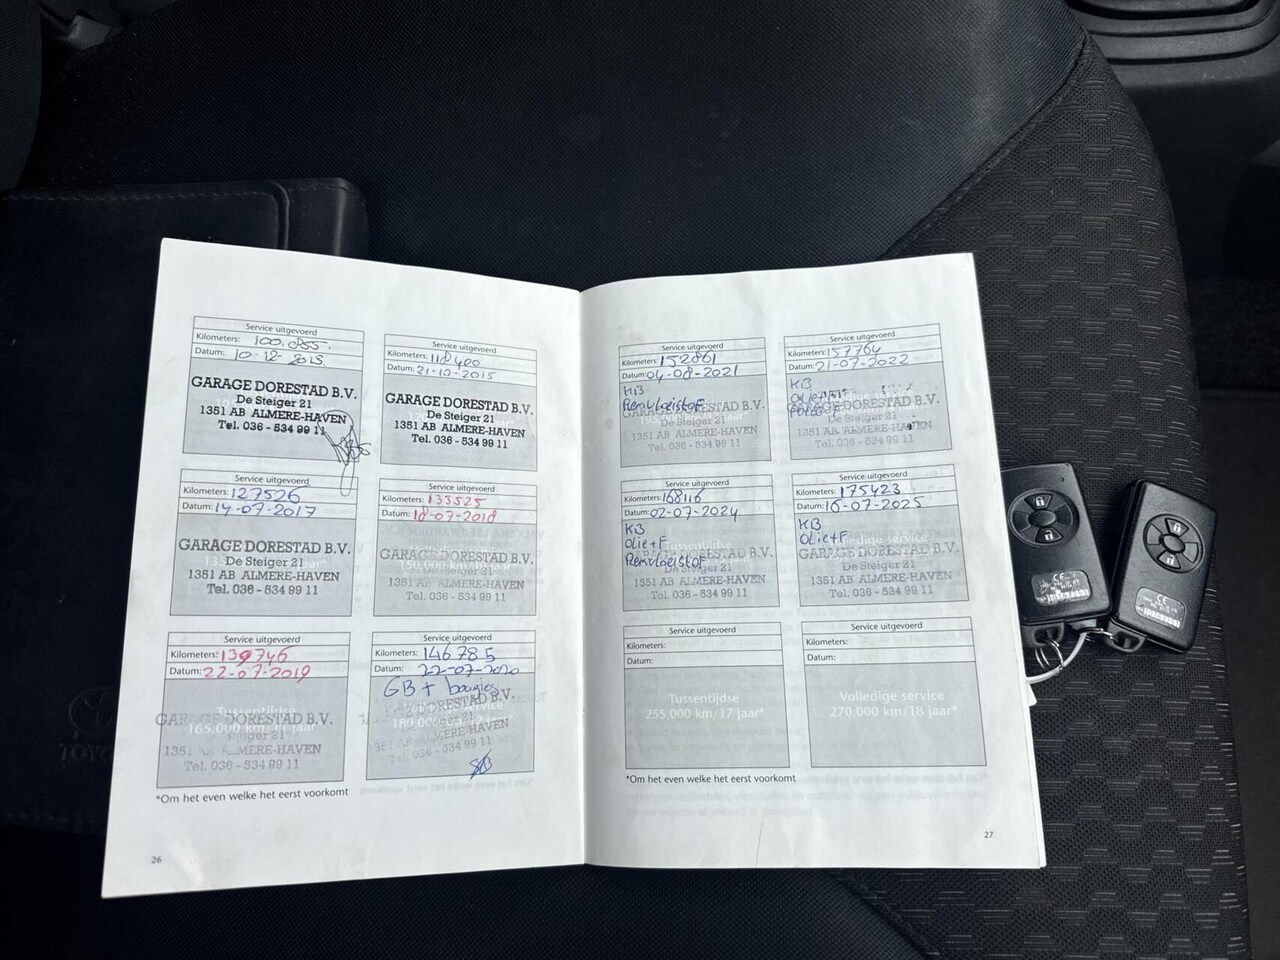 Service uitgevoerd
Kilometers: 100.855
Datum: 10-12-2013
GARAGE DORESTAD B.V.
De Steiger 21
1351 AB ALMERE-HAVEN
Tel. 036 - 534 99 11
Service uitgevoerd
Kilometers: 118400
Datum: 21-10-2015
GARAGE DORESTAD B.V.
De Steiger 21
1351 AB ALMERE-HAVEN
Tel. 036 - 534 99 11
Service uitgevoerd
Kilometers: 127526
Datum: 14-07-2017
GARAGE DORESTAD B.V.
De Steiger 21
1351 AB ALMERE-HAVEN
Tel. 036 - 534 99 11
Service uitgevoerd
Kilometers: 133525
Datum: 18-07-2018
GARAGE DORESTAD B.V.
150,000 km/10 jaar*
De Steiger 21
1351 AB ALMERE-HAVEN
Tel. 036 - 534 99 11
Service uitgevoerd
Kilometers: 139746
Datum: 22-07-2019
Tussentijdse
GARAGE DORESTAD B.V.
165,000 km/11 jaar*
De Steiger 21
1351 AB ALMERE-HAVEN
Tel. 036 - 534 99 11
Service uitgevoerd
Kilometers: 146785
Datum: 22-07-2020
GB + bougies
DORESTAD B.V.
180,000 km/12 jaar*
ALMERE-HAVEN
036 - 534 99 11
*Om het even welke het eerst voorkomt
26
Service uitgevoerd
Kilometers: 152861
Datum: 04-08-2021
KB
Remvloeistof
GARAGE DORESTAD B.V.
De Steiger 21
1351 AB ALMERE-HAVEN
Tel. 036 - 534 99 11
Service uitgevoerd
Kilometers: 157764
Datum: 21-07-2022
KB
DORESTAD B.V.
De Steiger 21
1351 AB ALMERE-HAVEN
Tel. 036 - 534 99 11
Service uitgevoerd
Kilometers: 168116
Datum: 02-07-2024
KB
Olie+F
Tussentijdse
Remvloeistof
DORESTAD B.V.
De Steiger 21
1351 AB ALMERE-HAVEN
Tel. 036 - 534 99 11
Service uitgevoerd
Kilometers: 175423
Datum: 16-07-2025
KB
Olie+F
GARAGE DORESTAD B.V.
De Steiger 21
1351 AB ALMERE-HAVEN
Tel. 036 - 534 99 11
Service uitgevoerd
Kilometers:
Datum:
Tussentijdse
255,000 km/17 jaar*
Service uitgevoerd
Kilometers:
Datum:
Volledige service
270,000 km/18 jaar*
*Om het even welke het eerst voorkomt
27